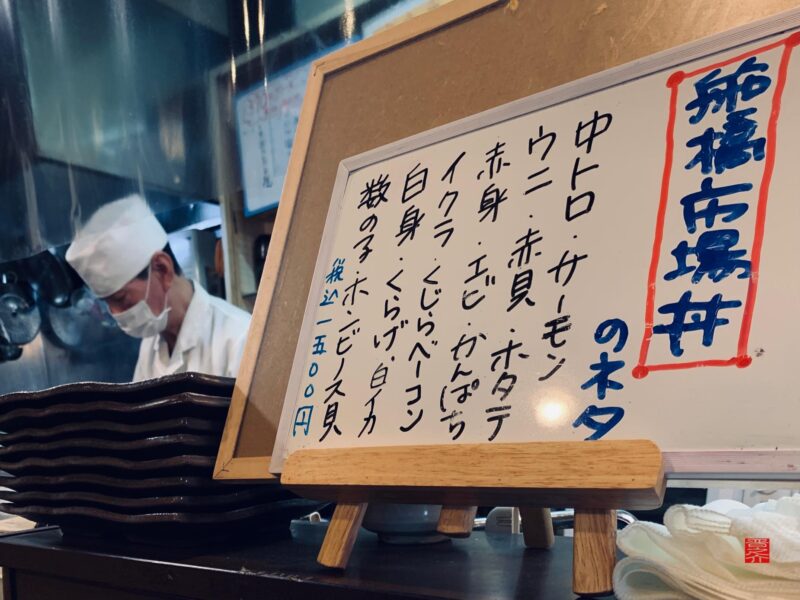 船橋市場丼
のネタ
中トロ・サーモン
ウニ・赤貝・ホタテ
赤身・エビ・かんぱち
イクラ・くじらベーコン
白身・くらげ・白イカ
数の子・ホンビノス貝
税込一五〇〇円